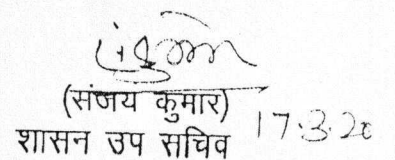 (संजय कुमार)
शासन उप सचिव 17.3.20